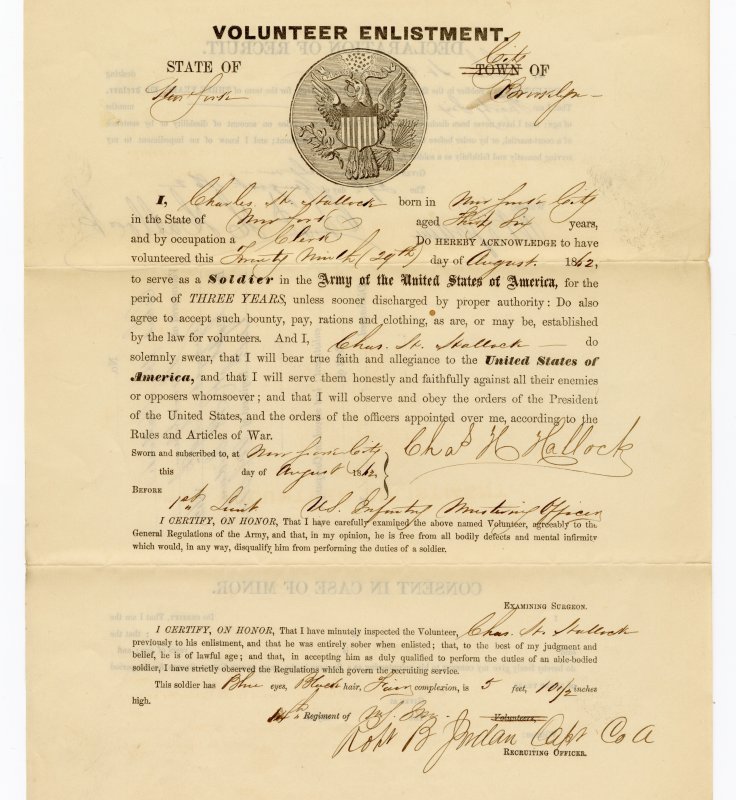 VOLUNTEER ENLISTMENT.
STATE OF City TOWN OF
New York Brooklyn
I, Charles H. Hallock born in New York City
in the State of New York aged Thirty Six years,
and by occupation a Clerk DO HEREBY ACKNOWLEDGE to have
volunteered this Twenty Ninth (29th) day of August 1862,
to serve as a Soldier in the Army of the United States of America, for the
period of THREE YEARS, unless sooner discharged by proper authority: Do also
agree to accept such bounty, pay, rations and clothing, as are, or may be, established
by the law for volunteers. And I, Chas. H. Hallock do
solemnly swear, that I will bear true faith and allegiance to the United States of
America, and that I will serve them honestly and faithfully against all their enemies
or opposers whomsoever; and that I will observe and obey the orders of the President
of the United States, and the orders of the officers appointed over me, according to the
Rules and Articles of War.
Sworn and subscribed to, at New York City Chas H Hallock
this day of August 1862,
BEFORE
1st Lieut U.S. Infantry Mustering Officer
I CERTIFY, ON HONOR, That I have carefully examined the above named Volunteer, agreeably to the
General Regulations of the Army, and that, in my opinion, he is free from all bodily defects and mental infirmity
which would, in any way, disqualify him from performing the duties of a soldier.
EXAMINING SURGEON.
I CERTIFY, ON HONOR, That I have minutely inspected the Volunteer, Chas. H. Hallock
previously to his enlistment, and that he was entirely sober when enlisted; that, to the best of my judgment and
belief, he is of lawful age; and that, in accepting him as duly qualified to perform the duties of an able-bodied
soldier, I have strictly observed the Regulations which govern the recruiting service.
This soldier has Blue eyes, Black hair, Fair complexion, is 5 feet, 10 1/2 inches
high.
Regiment of Volunteers,
Robt B Jordan Capt Co A
RECRUITING OFFICER.